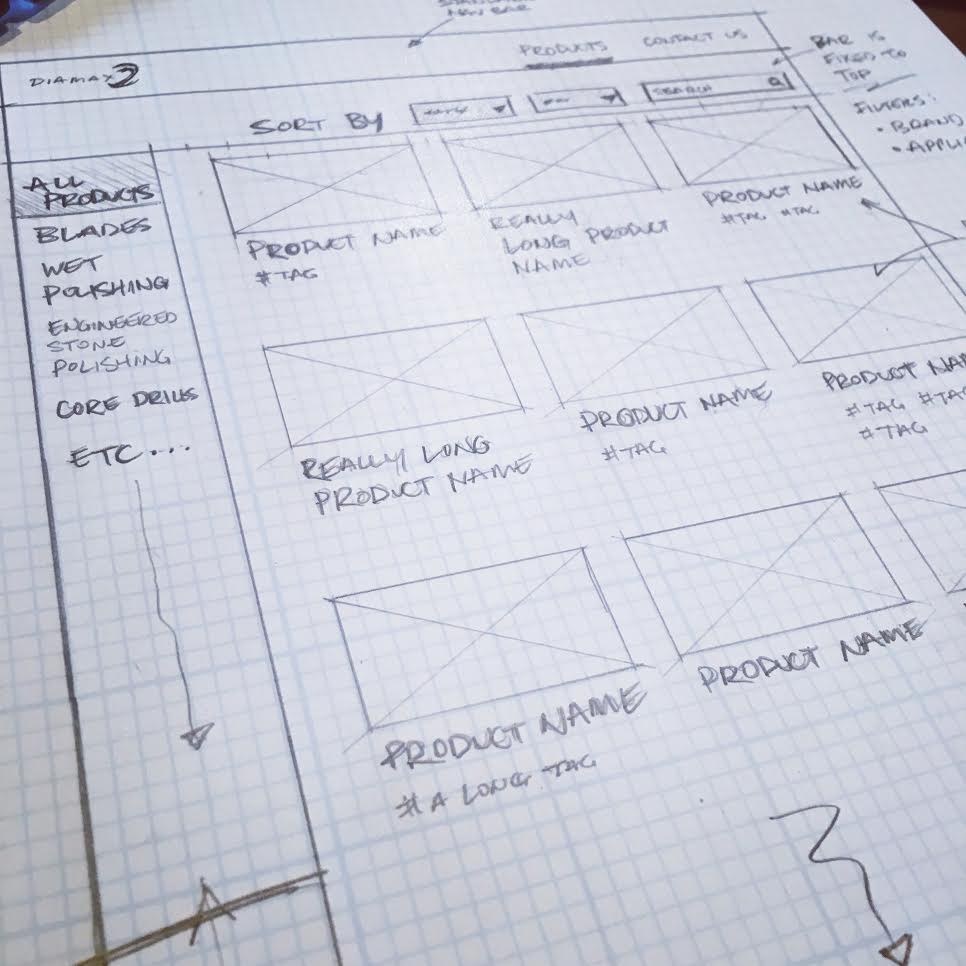 NEW BAR
DIAMAX2
PRODUCTS CONTACT US
SORT BY
SEARCH
BAR IS
FIXED TO
TOP
FILTERS:
• BRAND
ALL
PRODUCTS
BLADES
WET
POLISHING
ENGINEERED
STONE
POLISHING
CORE DRILLS
ETC...
PRODUCT NAME
#TAG
REALLY
LONG PRODUCT
NAME
PRODUCT NAME
#TAG #TAG
REALLY LONG
PRODUCT NAME
PRODUCT NAME
#TAG
PRODUCT
#TAG
#TAG
PRODUCT NAME
# A LONG TAG
PRODUCT NAME